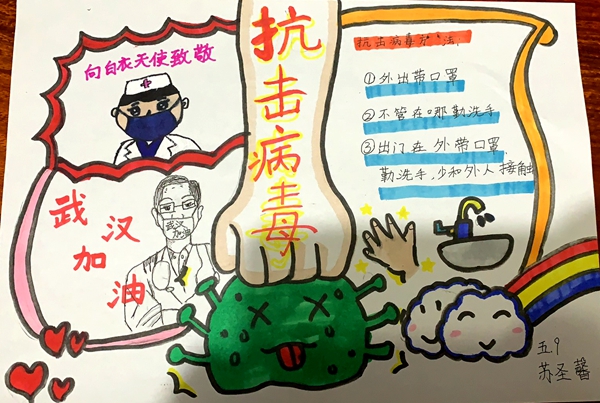 向白衣天使致敬
武汉
加油
抗击病毒
抗击病毒方法.
①外出带口罩
②不管在哪勤洗手
③出门在外带口罩
勤洗手,少和外人接触
五9
苏圣馨